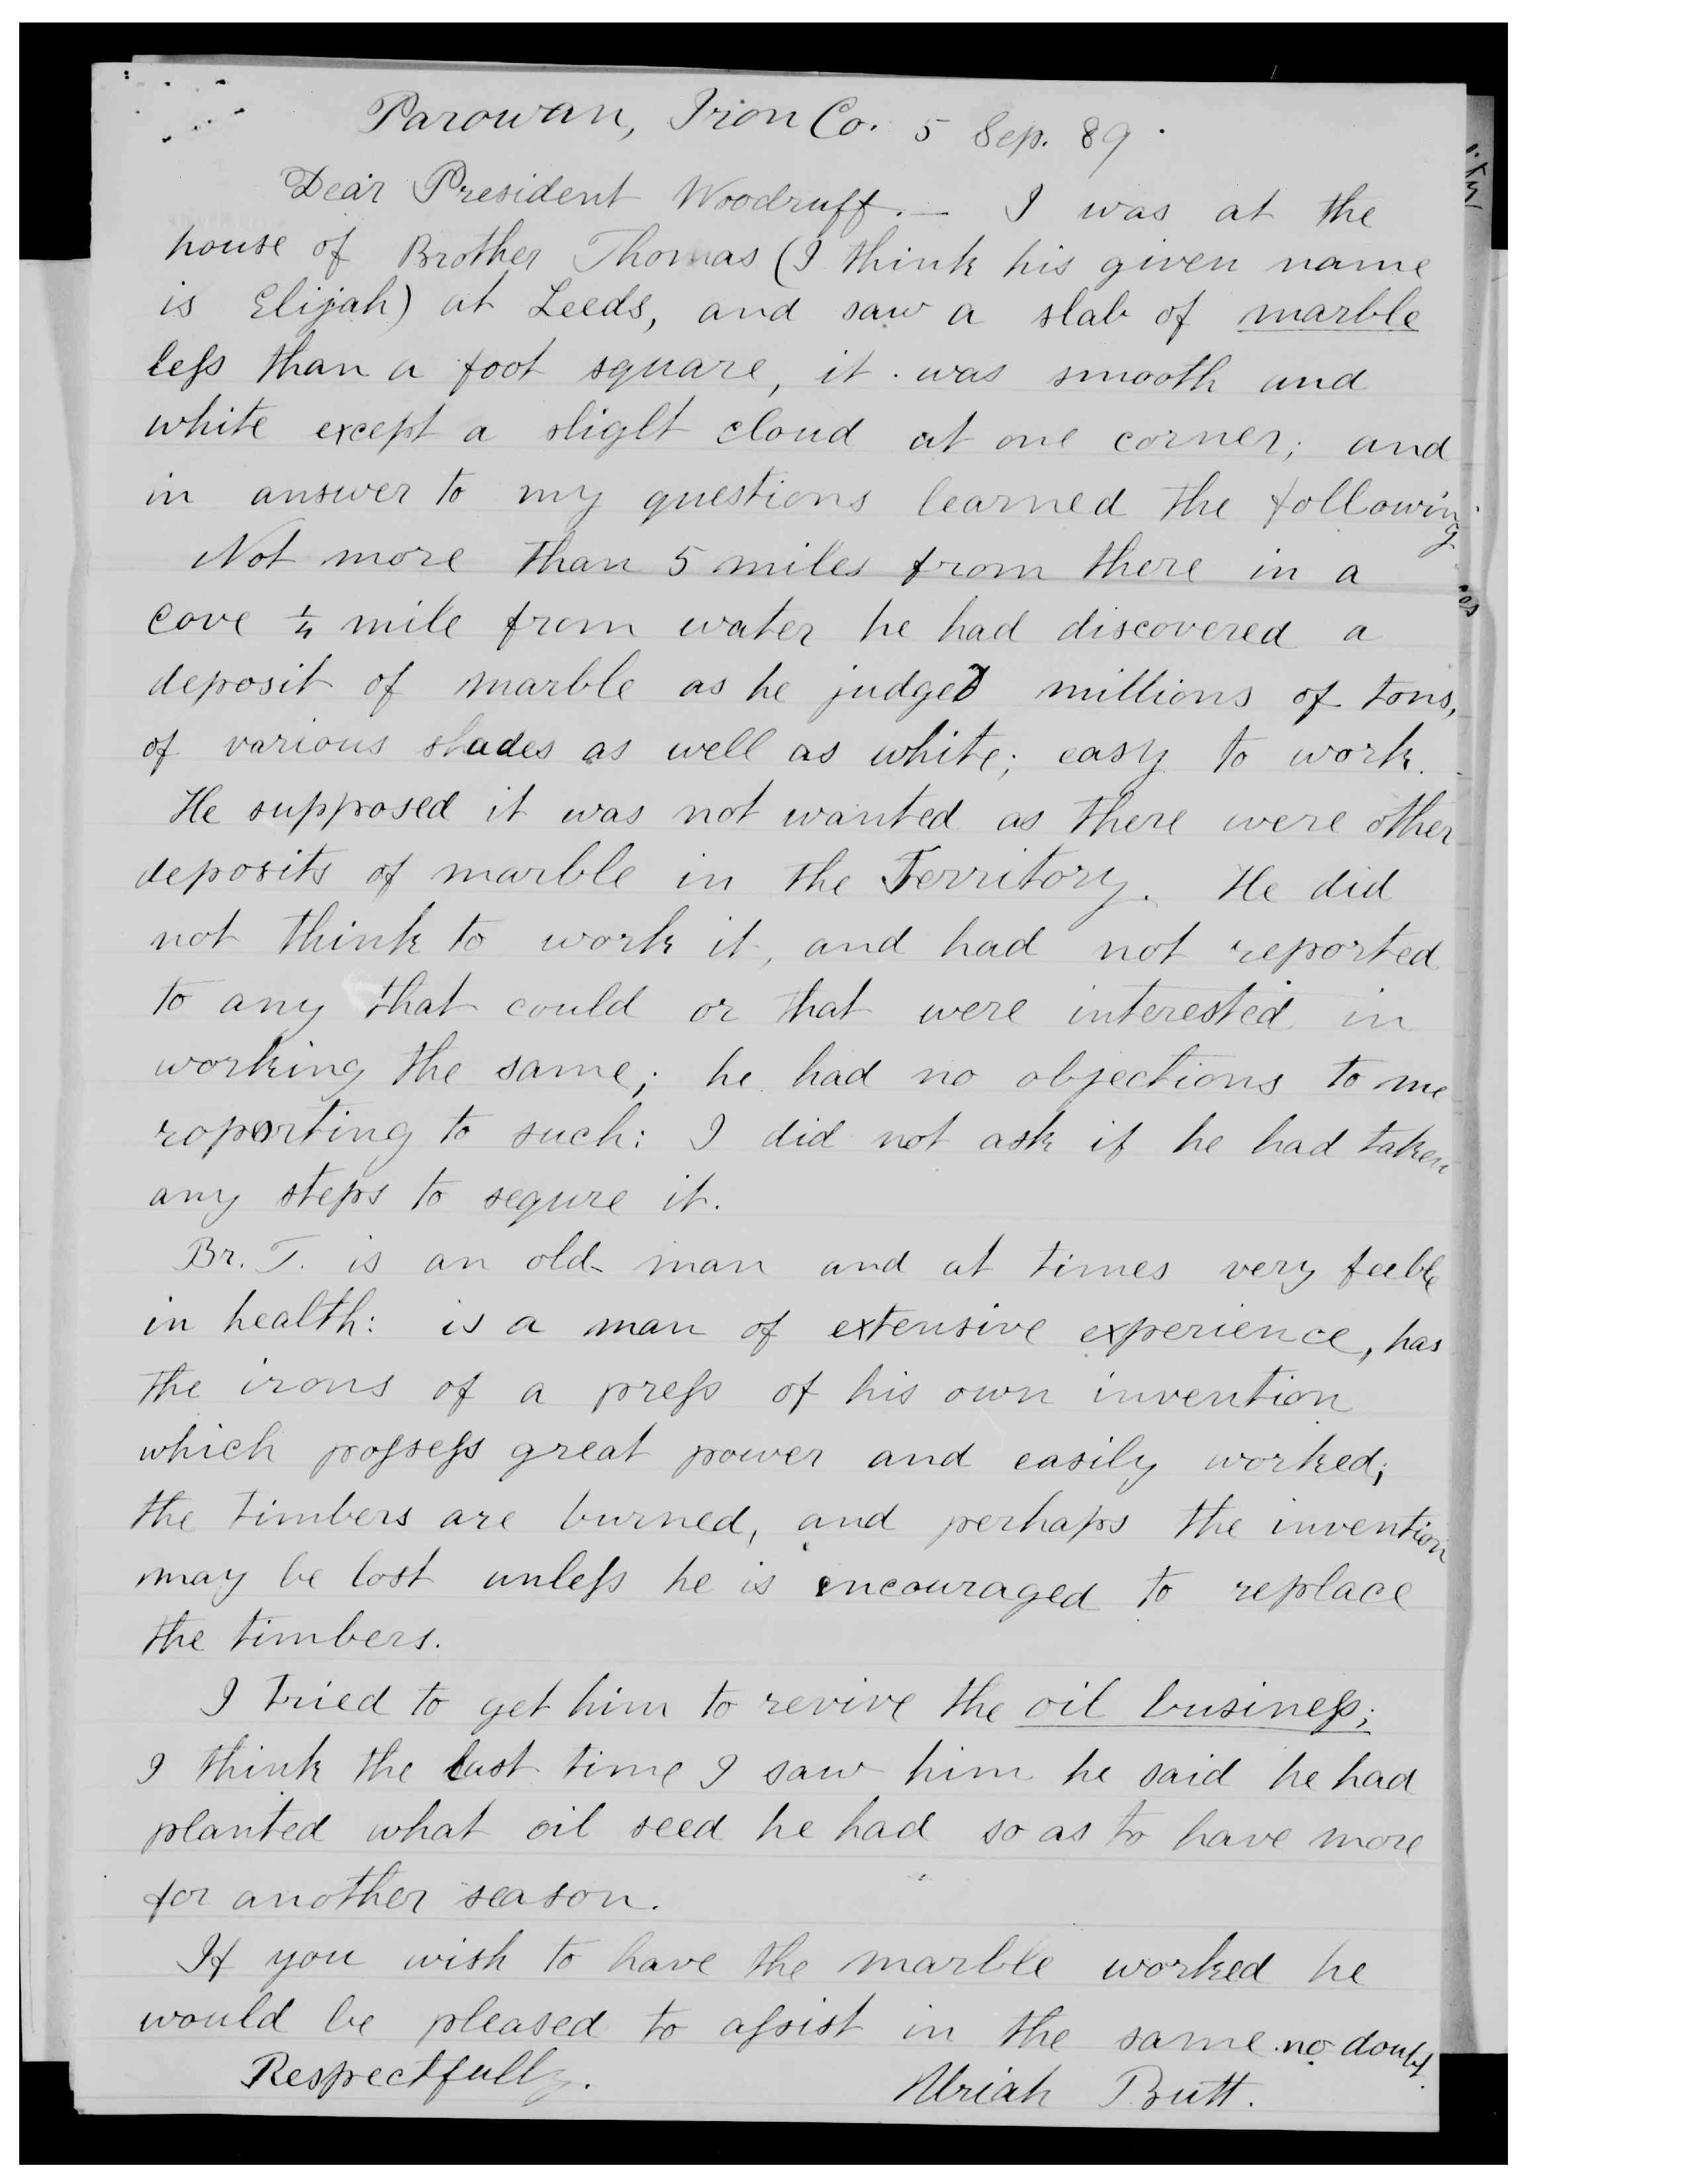 Parowan, Iron Co. 5 Sep. 89.
Dear President Woodruff.— I was at the
house of Brother Thomas (I think his given name
is Elijah) at Leeds, and saw a slab of marble
less than a foot square, it was smooth and
white except a sliglt cloud at one corner; and
in answer to my questions learned the following
Not more than 5 miles from there in a
cove 1/4 mile from water he had discovered a
deposit of marble as he judged millions of tons,
of various shades as well as white; easy to work.
He supposed it was not wanted as there were other
deposits of marble in the Territory. He did
not think to work it, and had not reported
to any that could or that were interested in
working the same; he had no objections to me
roporting to such: I did not ask if he had taken
any steps to sequre it.
Br. T. is an old man and at times very feeble
in health: is a man of extensive experience, has
the irons of a press of his own invention
which possess great power and easily worked;
the timbers are burned, and perhaps the invention
may be lost unless he is encouraged to replace
the timbers.
I tried to get him to revive the oil business;
I think the last time I saw him he said he had
planted what oil seed he had so as to have more
for another season.
If you wish to have the marble worked he
would be pleased to assist in the same no doubt.
Respectfully.
Uriah Butt.